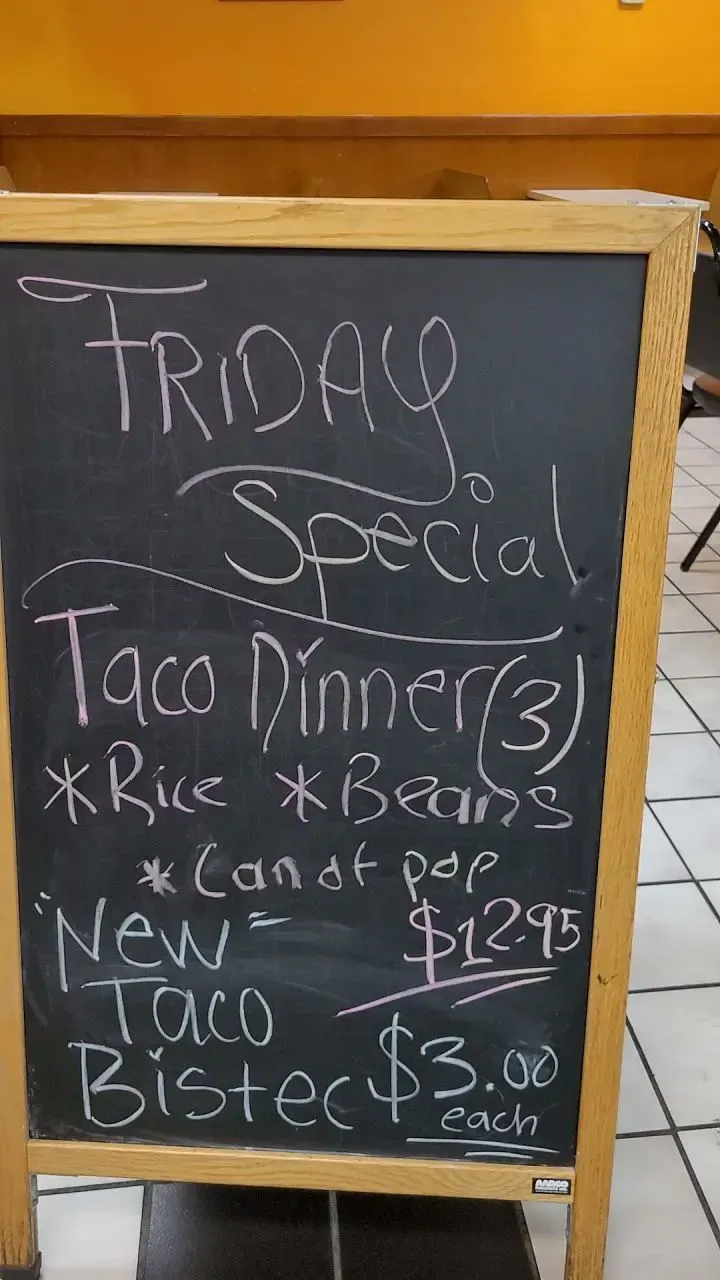 FRIDAY
Special
Taco Dinner (3)
*Rice *Beans
*Can of pop
$12.95
"New"
Taco
Bistec $3.00
each
AARCO